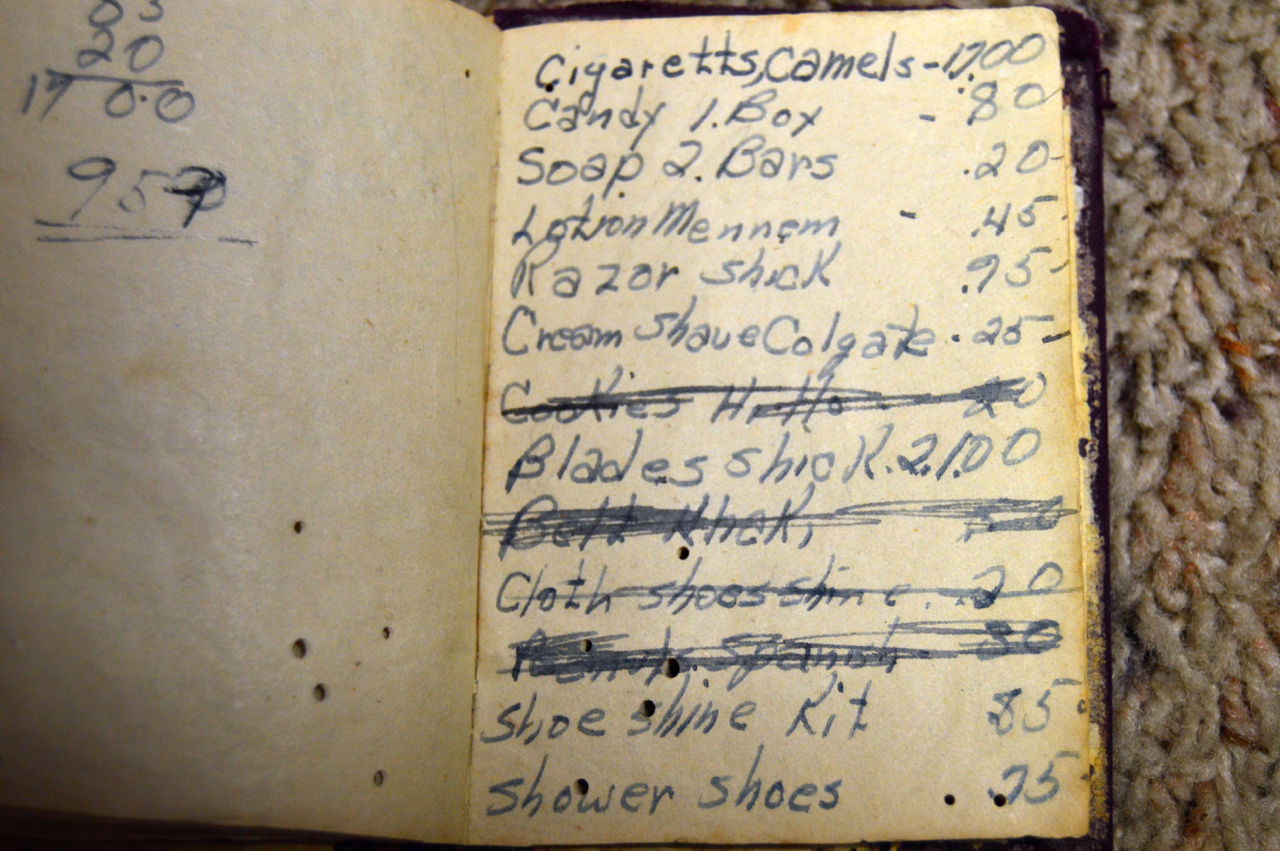 20
17 0.0
95
Cigaretts, Camels - 17.00
Candy 1. Box - .80
Soap 2. Bars .20
Lotion Mennem - .45
Razor shick .95
Cream shave Colgate .25
Cookies 20
Blades shick. 2.1.00
Belt
Cloth shoes shine. .20
Spanish 30
Shoe shine Kit 85
Shower shoes .75